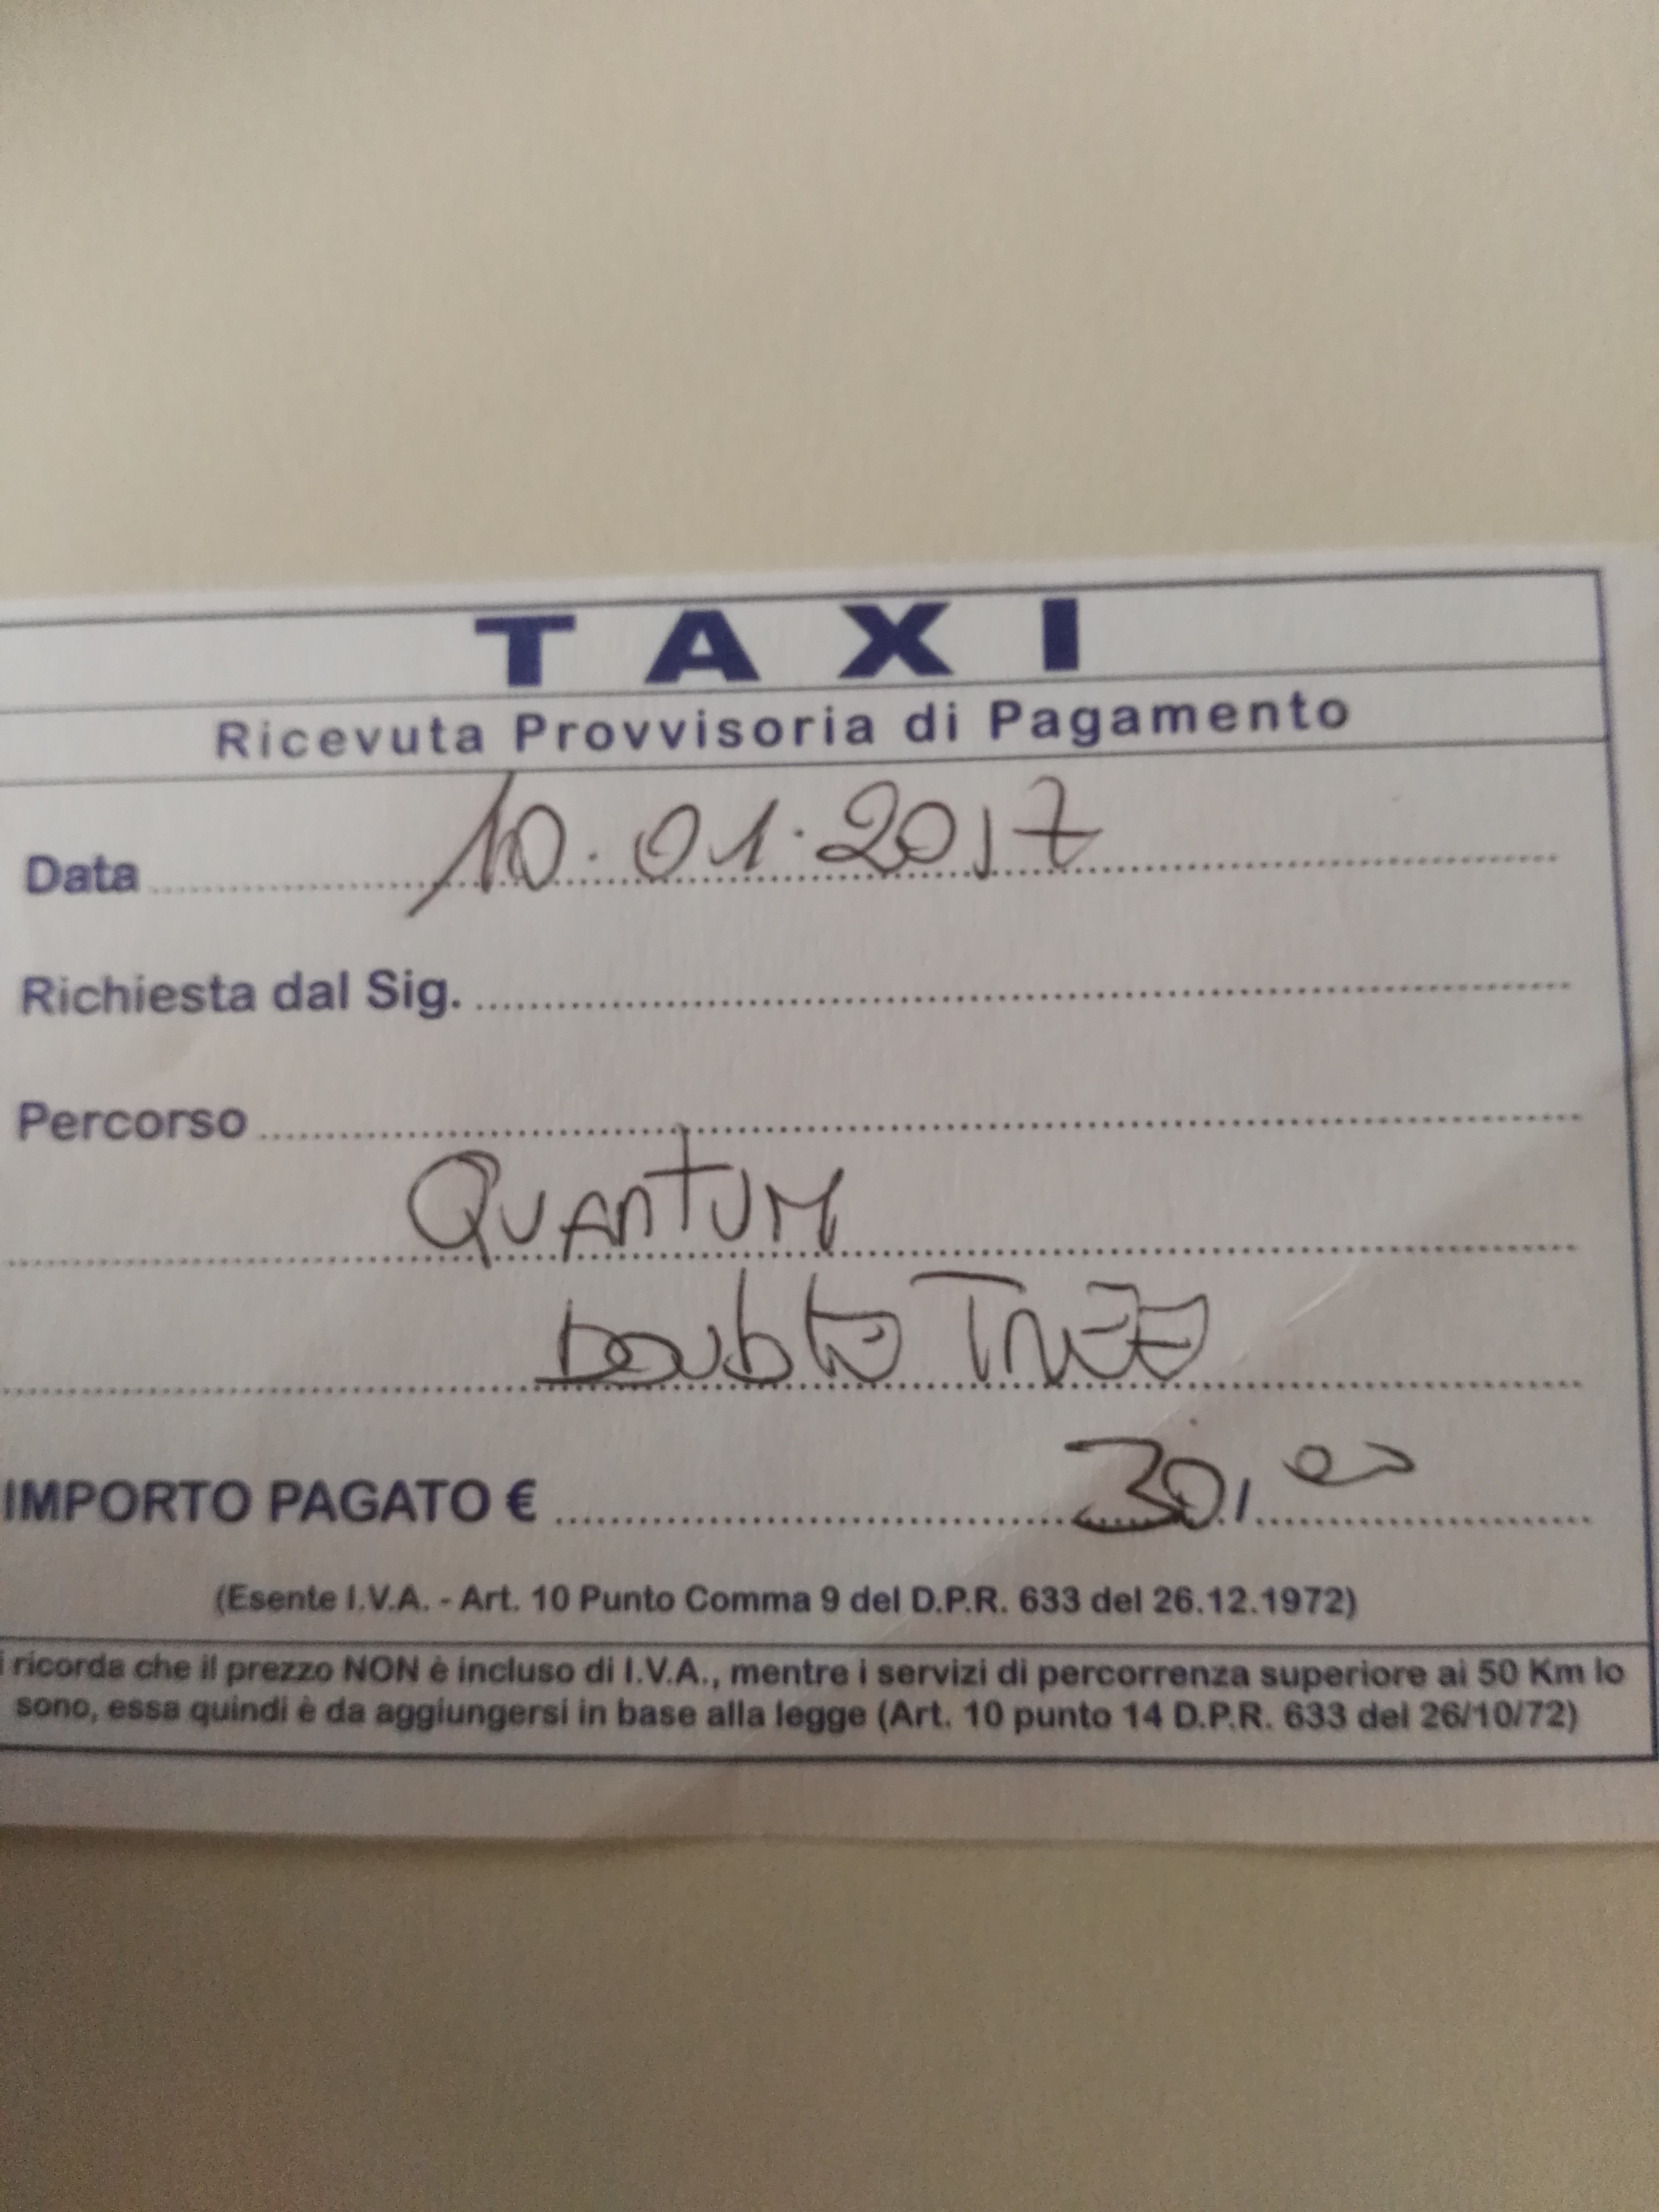 TAXI
Ricevuta Provvisoria di Pagamento
Data 10.01.2017
Richiesta dal Sig.
Percorso
QUANTUM
DOUBLE TREE
IMPORTO PAGATO € 30,00
(Esente I.V.A. - Art. 10 Punto Comma 9 del D.P.R. 633 del 26.12.1972)
i ricorda che il prezzo NON è incluso di I.V.A., mentre i servizi di percorrenza superiore ai 50 Km lo
sono, essa quindi è da aggiungersi in base alla legge (Art. 10 punto 14 D.P.R. 633 del 26/10/72)